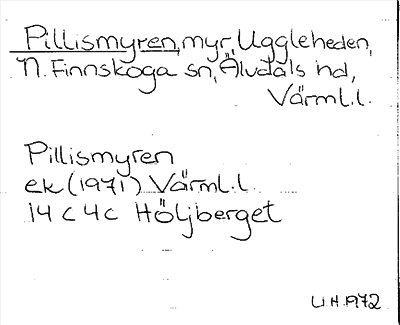 Pillismyren, myr, Uggleheden,
N. Finnskoga sn, Älvdals hd,
Värml. l.
Pillismyren
ek (1971) Värml. l.
14 C 4 c Höljberget
U.H. 1972